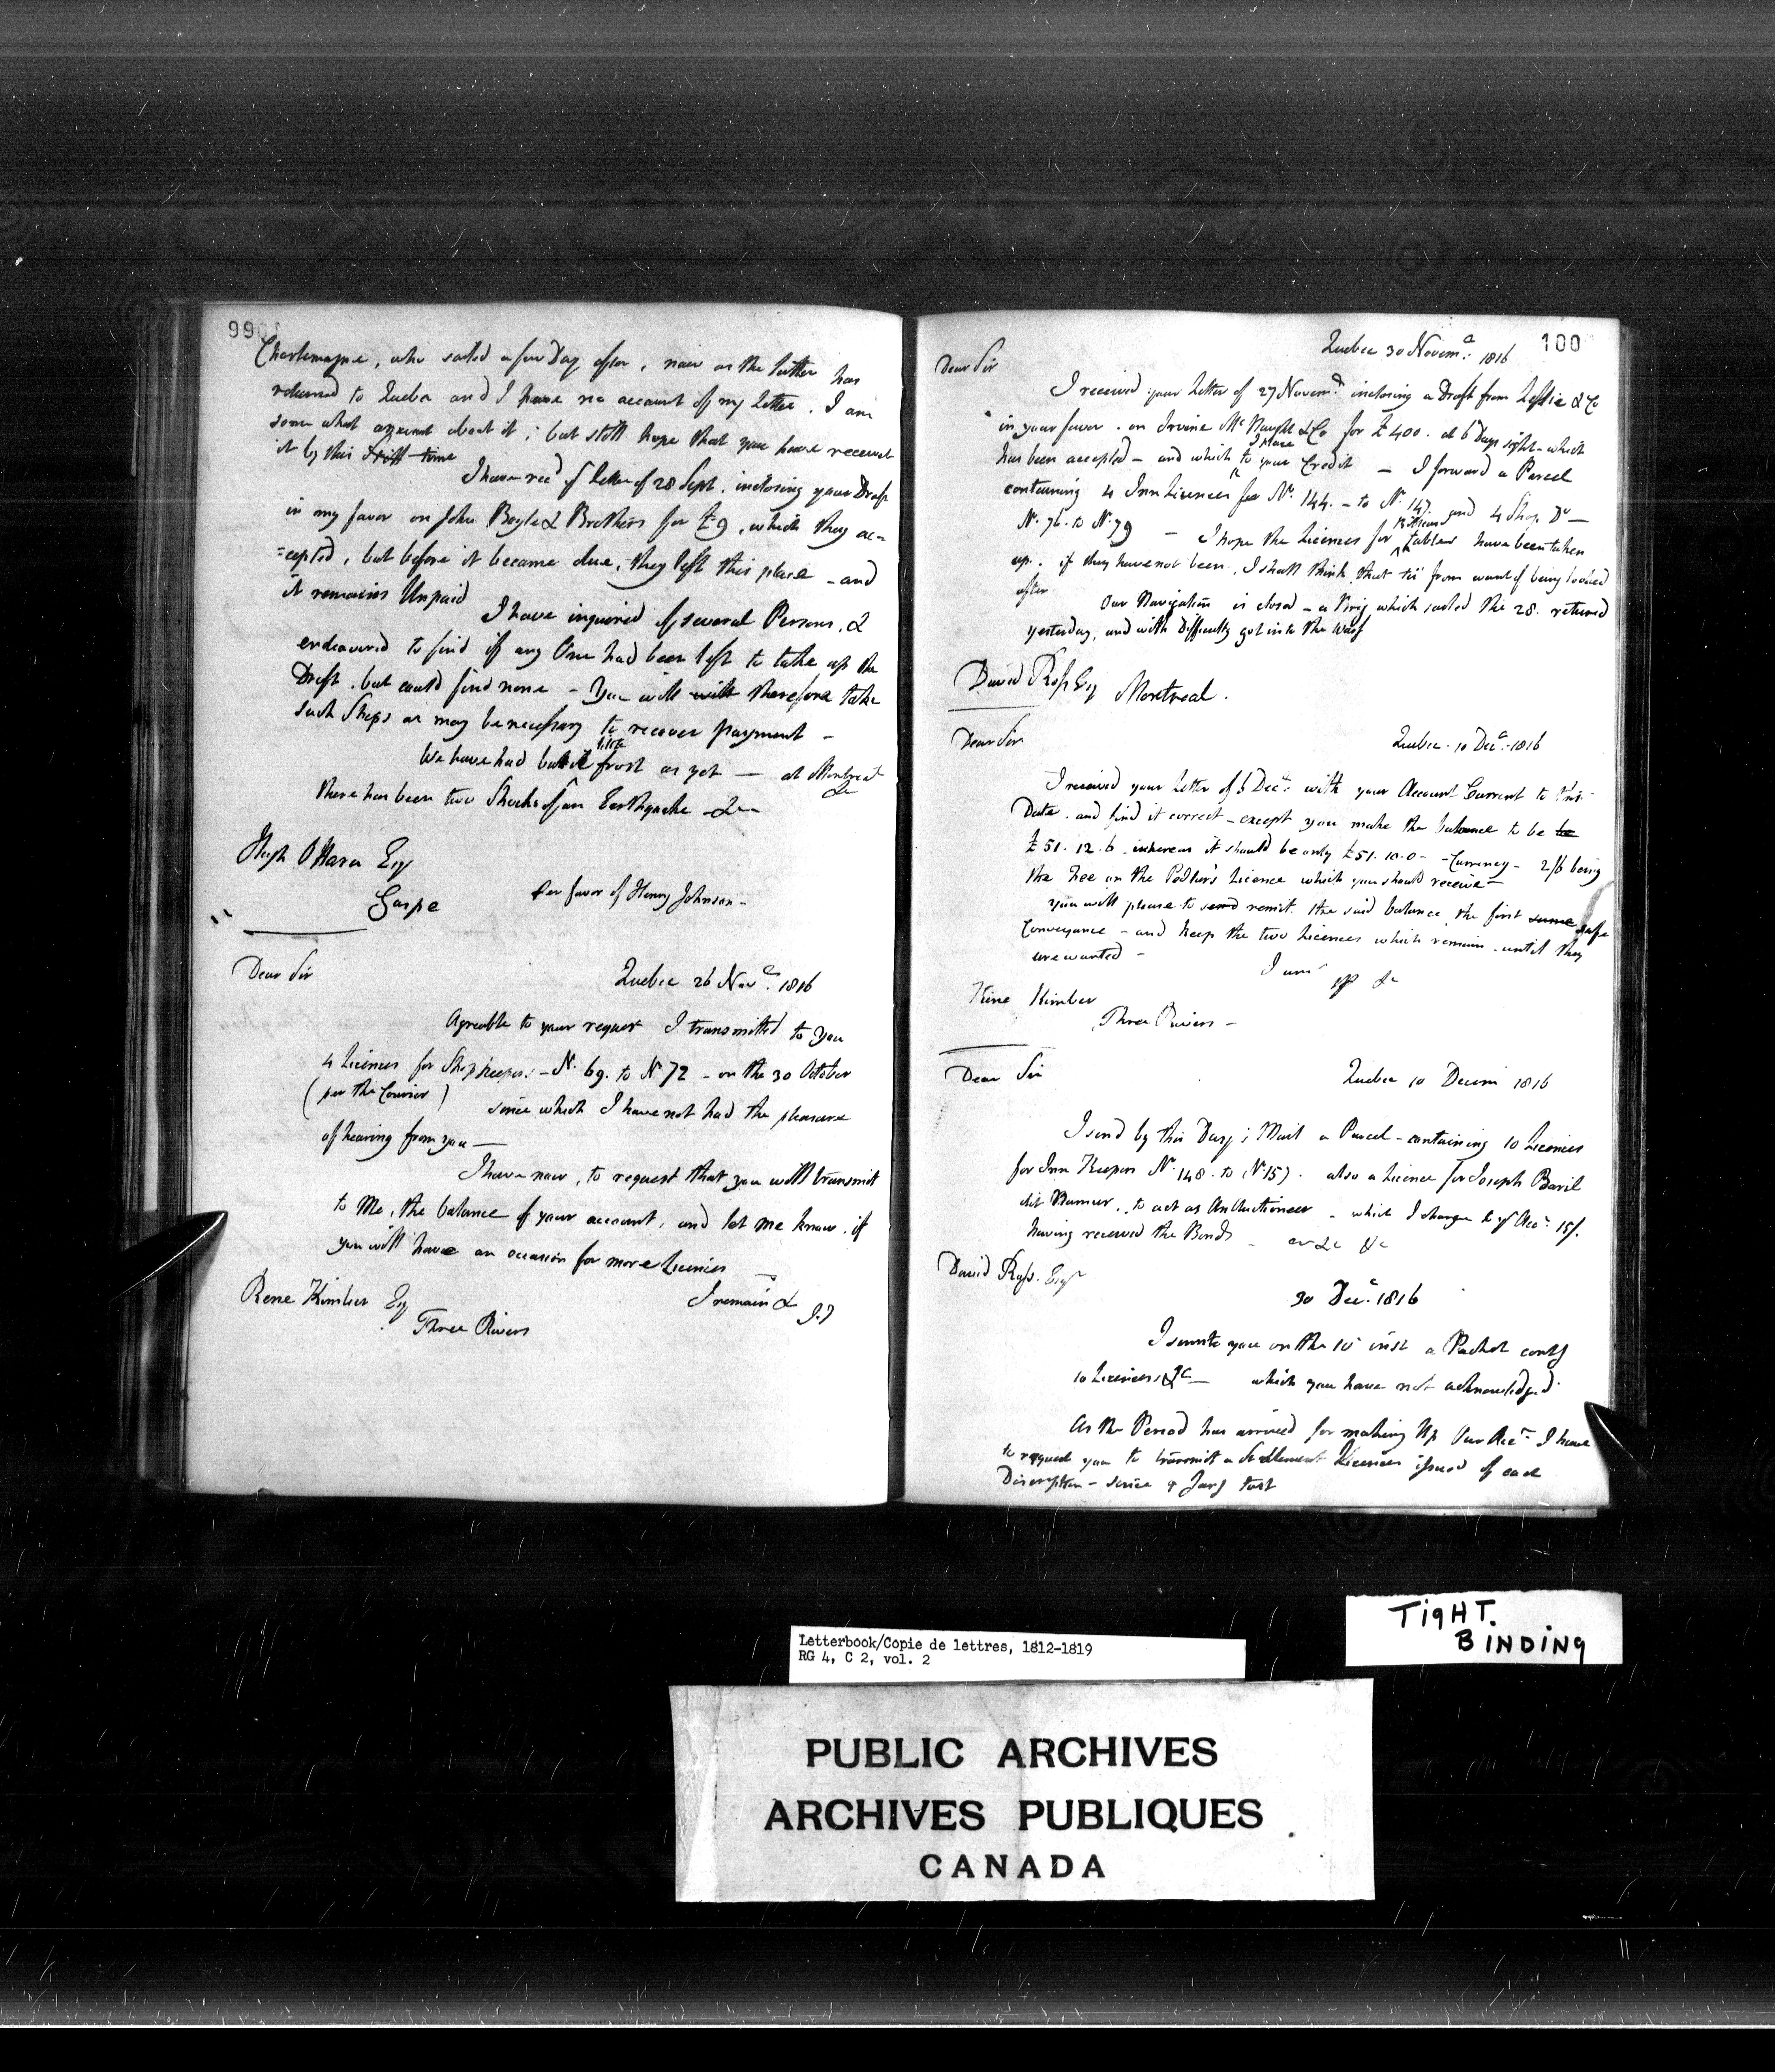 99
Charlemagne, who sailed a few Day after, now as the latter has
returned to Quebec and I have no account of my Letter. I am
some what anxious about it; but still hope that you have received
it by this time
I have rec'd yr letter of 28 Sept. inclosing your Draft
in my favor on John Boyle & Brothers for £9, which they ac=
=cepted, but before it became due, they left this place - and
it remains Unpaid
I have inquired of several Persons, &
endeavored to find if any One had been left to take up the
Draft, but could find none - You will will therefore take
such Steps as may be necessary to recover payment -
We have had but little frost as yet — at Montreal
there has been two Shocks of an Earthquake - &c
Hugh O'Hara Esq
Gaspe
Per favor of Henry Johnson -
Dear Sir
Quebec 26 Nov.r 1816
Agreable to your request I transmitted to you
4 Licences for Shopkeepers - No. 69. to No 72 - on the 30 October
(per the Courier) since which I have not had the pleasure
of hearing from you —
I have now, to request that you will transmit
to Me, the balance of your account, and let me know, if
you will have an occasion for more Licences
I remain &
Rene Kimber Esq
Three Rivers
100
Quebec 30 Novem.r 1816
Dear Sir
I received your Letter of 27 Novem.r inclosing a Draft from Leslie & Co
in your favor on Irvine McNaught & Co for £400. at 6 Days sight - which
has been accepted - and which I place to your Credit - I forward a Parcel
containing 4 Inn Licences for No. 144. - to No. 147. and 4 Shop Do —
No. 76. to No. 79 - I hope the Licences for Billiard tables have been taken
up. if they have not been, I shall think that tis from want of being looked
after
Our Navigation is closed - a Brig which sailed the 28. returned
yesterday, and with difficulty got into the Warf
David Ross Esq Montreal.
Dear Sir
Quebec. 10 Dec.r 1816
I received your Letter of 6 Dec.r with your Account Current to this
Date. and find it correct - except you make the balance to be be
£51. 12. 6. whereas it should be only £51. 10. 0 - Currency - 2/6 being
the Fee on the Pedler's Licence which you should receive -
you will please to send remit the said balance, the first same safe
Conveyance - and keep the two Licences which remain until they
are wanted -
I am
&c
Rine Kimber
Three Rivers -
Dear Sir
Quebec 10 Decem 1816
I send by this Day's Mail a Parcel - containing 10 Licences
for Inn Keepers No. 148. to No 157. also a Licence for Joseph Baril
dit to act as An Auctioneer - which I charge to yr Acc.t 15/.
having received the Bonds &c &c
David Ross. Esqr
30 Dec.r 1816
I wrote you on the 10 inst a Packet contg
10 Licences, &c — which you have not acknowledged.
As the Period has arrived for making Up Our Acc.ts I have
to request you to transmit a Settlement Licences issued of each
Discription - since Jany last
Letterbook/Copie de lettres, 1812-1819
RG 4, C 2, vol. 2
TIGHT.
BINDING
PUBLIC ARCHIVES
ARCHIVES PUBLIQUES
CANADA